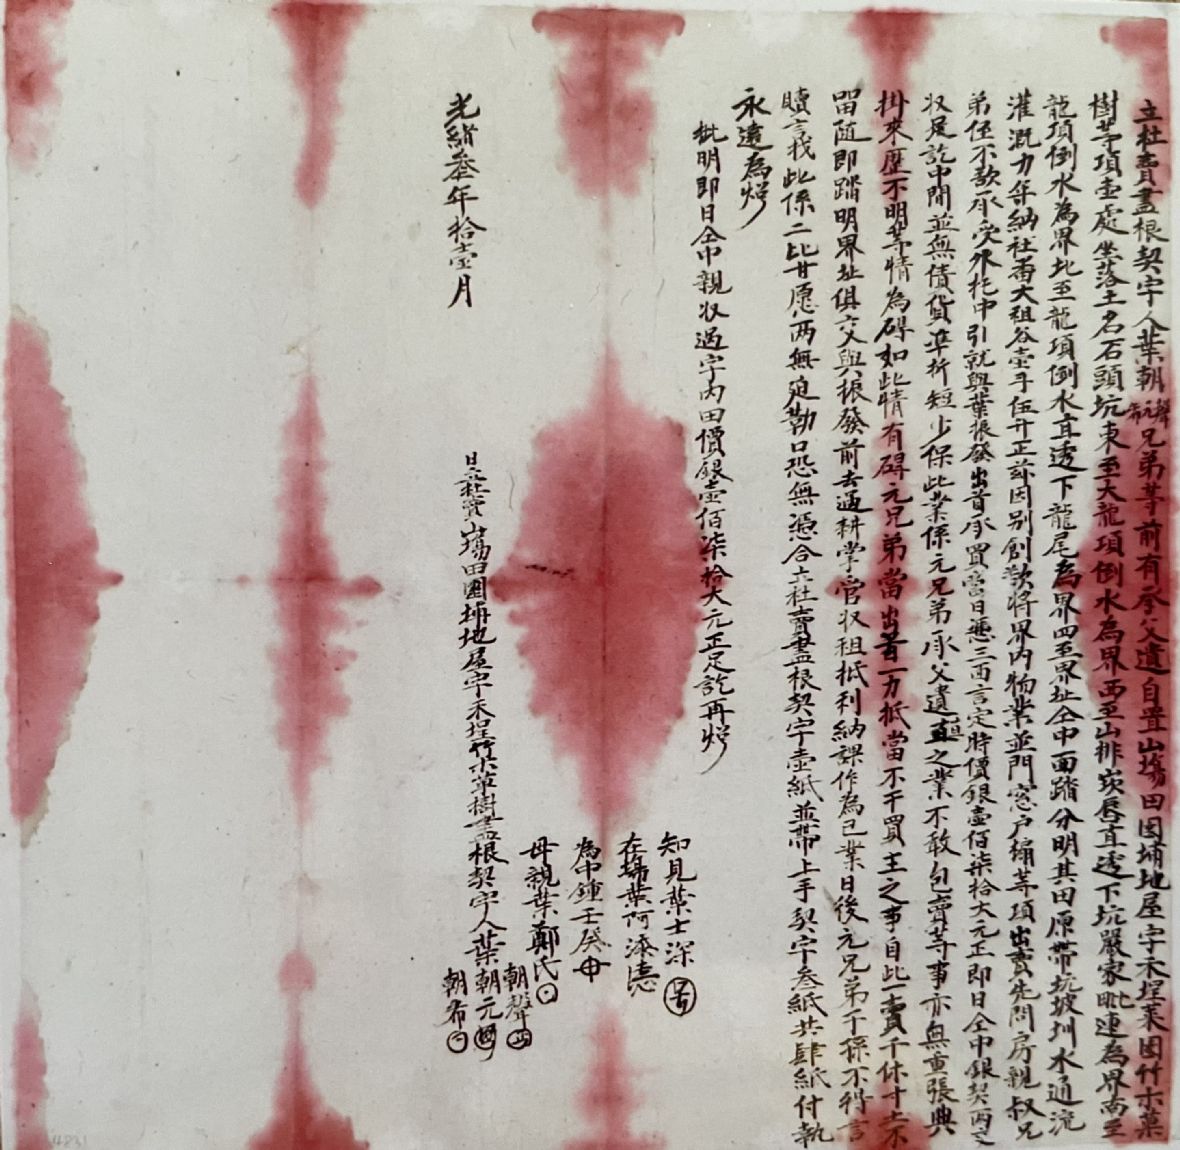 立杜賣盡根契字人葉朝聲元希兄弟等前有承父遺自置山塲田園埔地屋宇禾埕菜園竹木菓
樹等項壹處坐落土名石頭坑東至大龍項倒水為界西至山排崁唇直透下坑嚴家毗連為界南至
龍項倒水為界北至龍項倒水直透下龍尾為界四至界址仝中面踏分明其田原帶坑坡圳水通流
灌溉力年納社番大租谷壹斗伍升正茲因別創欲將界內物業並門窓户扇等項出賣先問房親叔兄
弟侄不欲承受外托中引就與葉振發出首承買當日憑三面言定時價銀壹佰柒拾大元正即日仝中銀契両交
収足訖中間並無債貨準折短少保此業係元兄弟承父遺置之業不敢包賣等事亦無重張典
掛來歷不明等情為碍如此情有碍元兄弟當出首一力抵當不干買主之事自此一賣千休寸土不
留随即踏明界址俱交與振發前去過耕掌管収租抵利納課作為己業日後元兄弟子孫不得言
贖言找此係二比甘愿両無迫勒口恐無憑合立杜賣盡根契字壹紙並帶上手契字叁紙共肆紙付執
永遠為炤
批明即日仝中親収過字內田價銀壹佰柒拾大元正足訖再炤
知見葉士深
在塲葉阿添
為中鍾壬癸
母親葉鄭氏
光緒叁年拾壹月
日立杜賣山塲田園埔地屋宇禾埕竹木菓樹盡根契字人葉朝聲
朝元
朝希